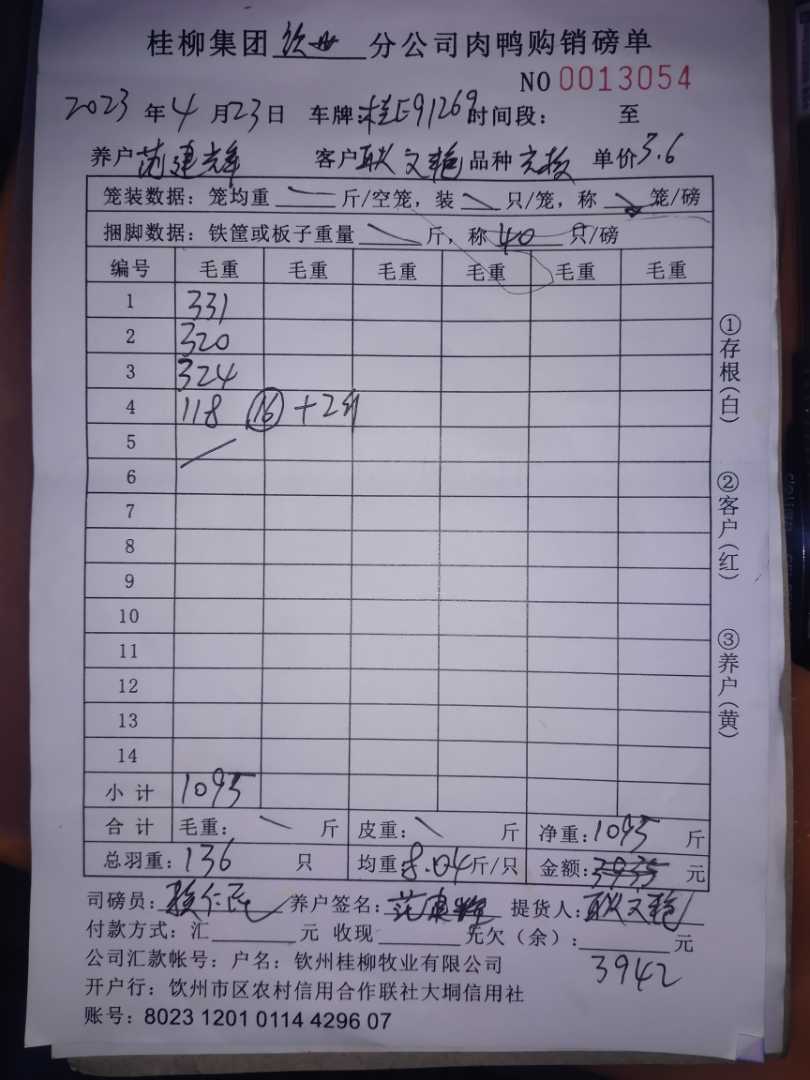 桂柳集团 钦州 分公司肉鸭购销磅单
NO 0013054
2023 年 4 月 23 日 车牌:桂E91269 时间段: 至
养户 范建辉 客户 耿文艳 品种 单价 3.6
笼装数据: 笼均重 斤/空笼, 装 只/笼, 称 笼/磅
捆脚数据: 铁筐或板子重量 斤, 称 40 只/磅
编号 毛重 毛重 毛重 毛重 毛重 毛重
1 331
2 320
3 324
4 118 ⑯ +2斤
5
6
7
8
9
10
11
12
13
14
小计 1095
合计 毛重: 斤 皮重: 斤 净重: 1095 斤
总羽重: 136 只 均重: 8.04 斤/只 金额: 3935 元
司磅员: 养户签名: 范建辉 提货人: 耿文艳
付款方式: 汇 元 收现 元欠(余): 元
3942
公司汇款帐号: 户名: 钦州桂柳牧业有限公司
开户行: 饮州市区农村信用合作联社大垌信用社
账号: 8023 1201 0114 4296 07
①存根(白)
②客户(红)
③养户(黄)